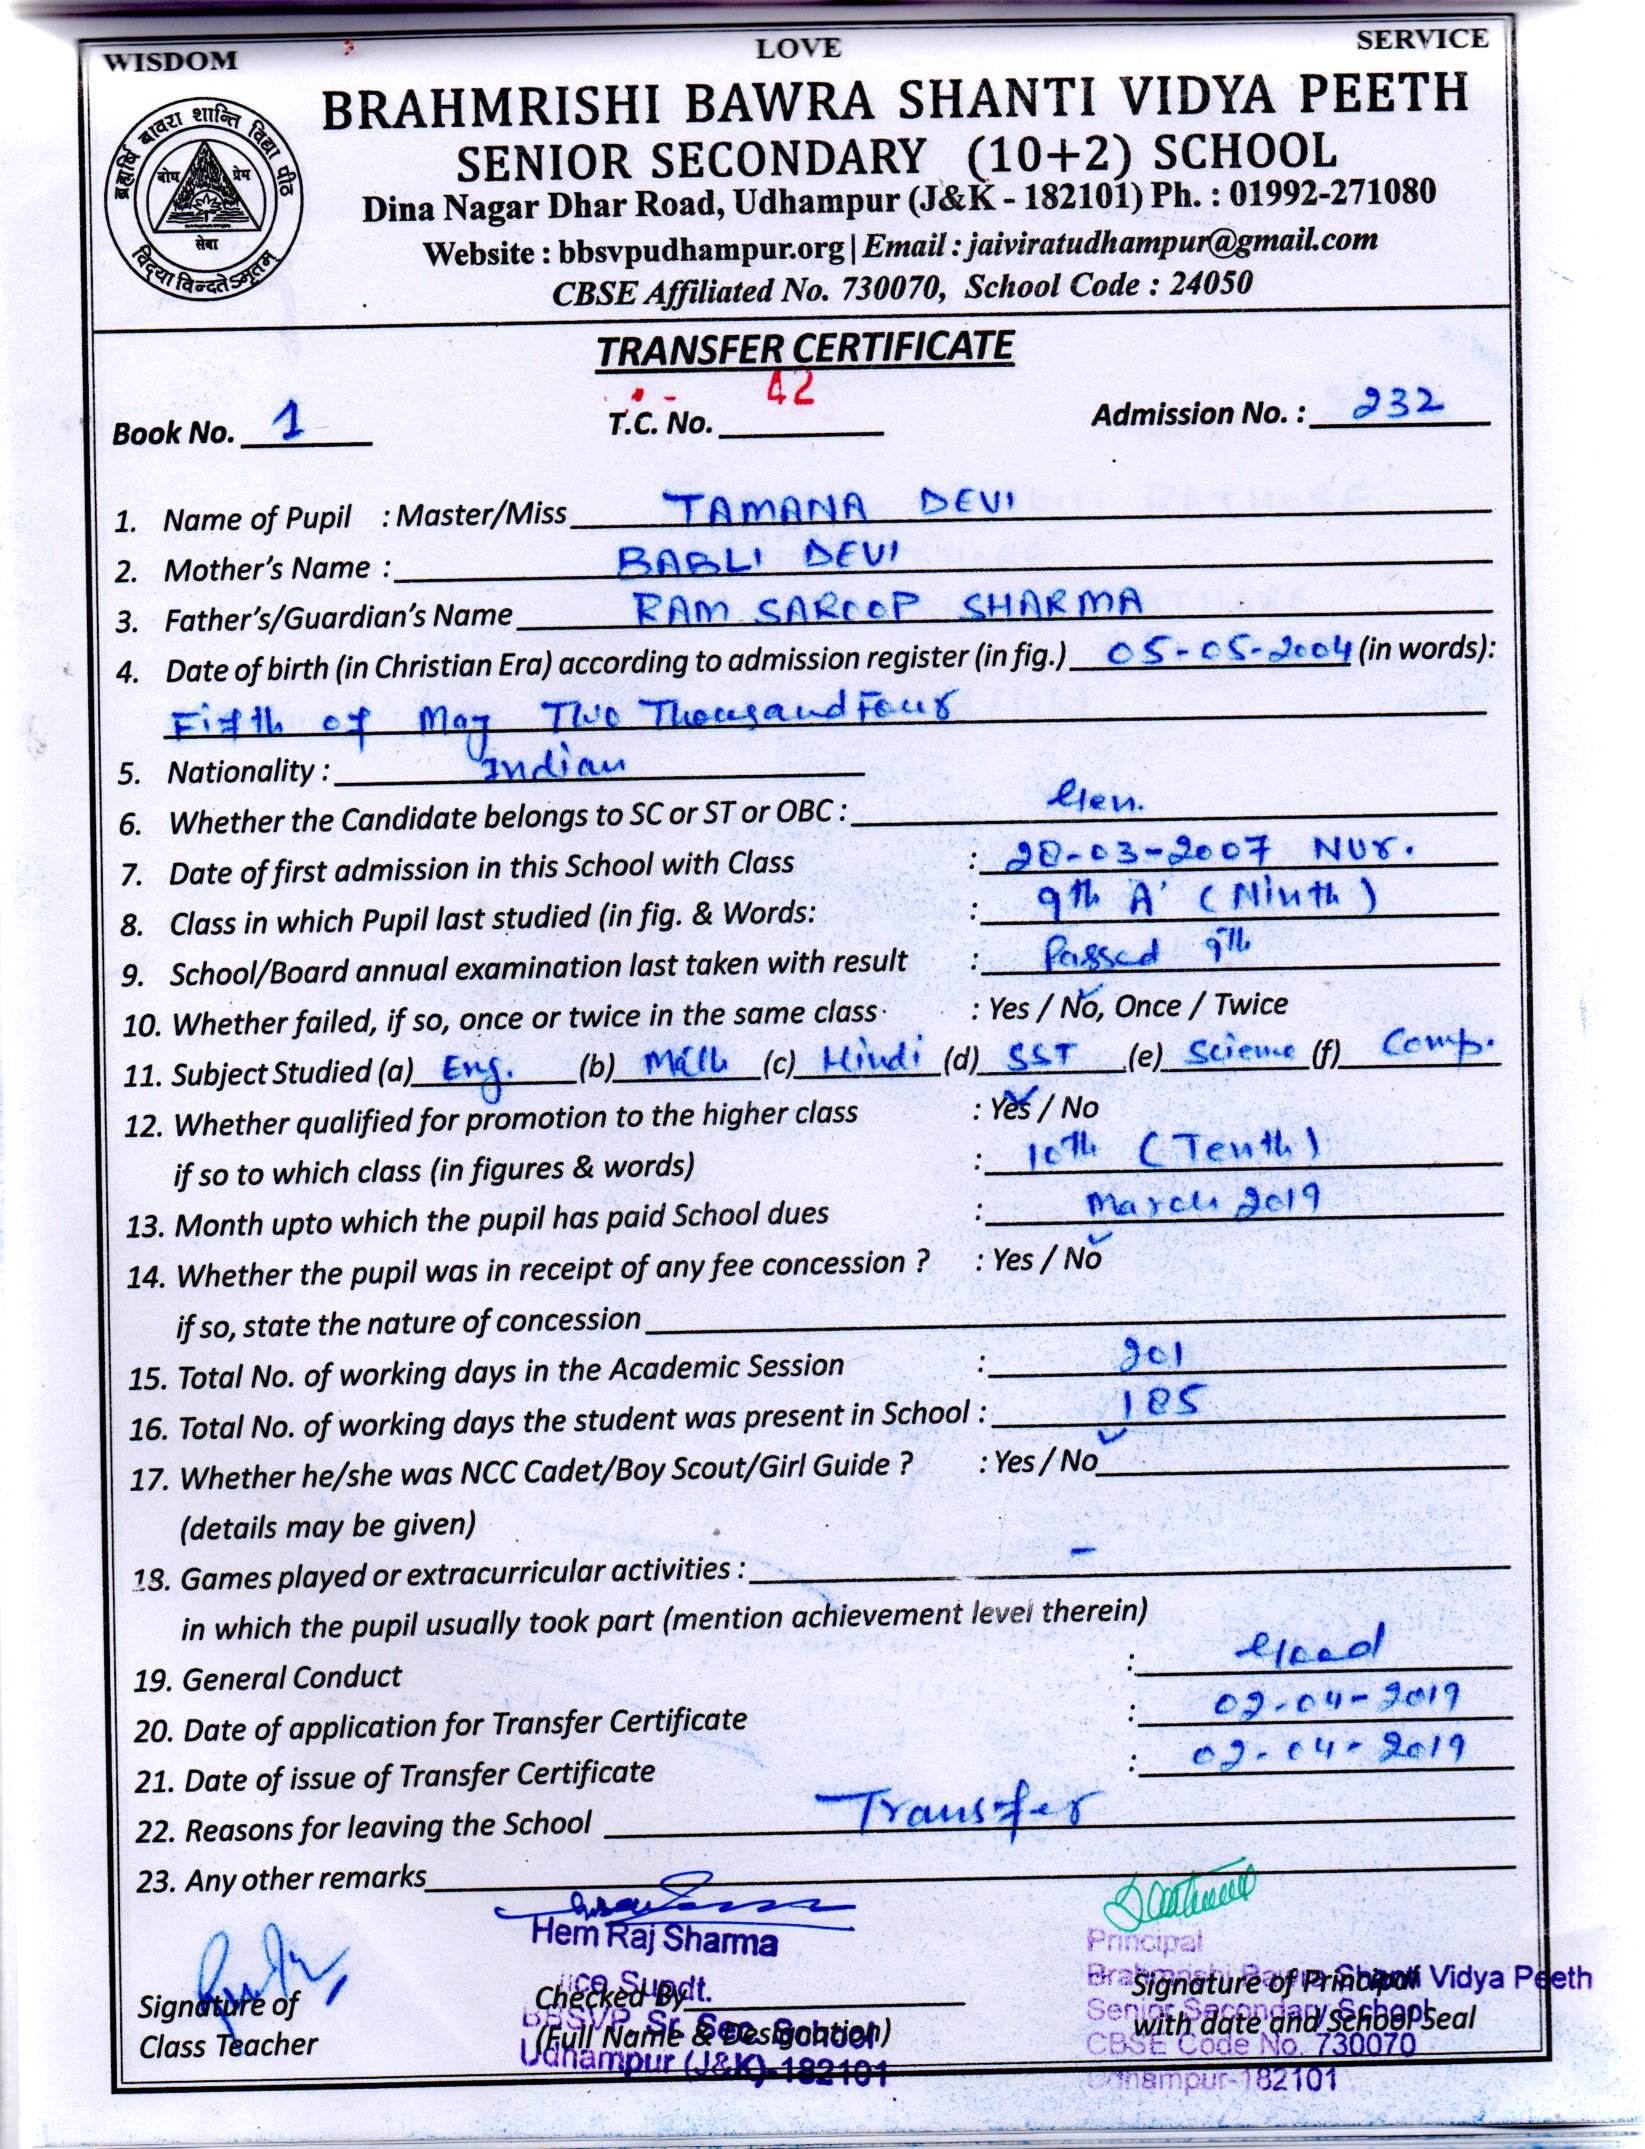 WISDOM LOVE SERVICE
ब्रह्मर्षि बावरा शान्ति विद्या पीठ
बोध प्रेम
सेवा
विद्या विन्दतेऽमृतम्
BRAHMRISHI BAWRA SHANTI VIDYA PEETH
SENIOR SECONDARY (10+2) SCHOOL
Dina Nagar Dhar Road, Udhampur (J&K - 182101) Ph. : 01992-271080
Website : bbsvpudhampur.org | Email : jaiviratudhampur@gmail.com
CBSE Affiliated No. 730070, School Code : 24050
TRANSFER CERTIFICATE
Book No. 1 T.C. No. 42 Admission No. : 232
1. Name of Pupil : Master/Miss TAMANA DEVI
2. Mother's Name : BABLI DEVI
3. Father's/Guardian's Name RAM SAROOP SHARMA
4. Date of birth (in Christian Era) according to admission register (in fig.) 05-05-2004 (in words):
Fifth of May Two Thousand Four
5. Nationality : Indian
6. Whether the Candidate belongs to SC or ST or OBC : Gen.
7. Date of first admission in this School with Class : 28-03-2007 Nur.
8. Class in which Pupil last studied (in fig. & Words: : 9th A' (Ninth)
9. School/Board annual examination last taken with result : Passed 9th
10. Whether failed, if so, once or twice in the same class : Yes / No, Once / Twice
11. Subject Studied (a) Eng. (b) Math (c) Hindi (d) SST (e) Science (f) Comp.
12. Whether qualified for promotion to the higher class : Yes / No
if so to which class (in figures & words) : 10th (Tenth)
13. Month upto which the pupil has paid School dues : March 2019
14. Whether the pupil was in receipt of any fee concession ? : Yes / No
if so, state the nature of concession
15. Total No. of working days in the Academic Session : 201
16. Total No. of working days the student was present in School : 185
17. Whether he/she was NCC Cadet/Boy Scout/Girl Guide ? : Yes / No
(details may be given)
18. Games played or extracurricular activities : -
in which the pupil usually took part (mention achievement level therein)
19. General Conduct : Good
20. Date of application for Transfer Certificate : 02-04-2019
21. Date of issue of Transfer Certificate : 02-04-2019
22. Reasons for leaving the School Transfer
23. Any other remarks
Hem Raj Sharma
Supdt.
BBSVP Sr. Sec. School
Udhampur (J&K)-182101
Principal
Brahmrishi Bawra Shanti Vidya Peeth
Senior Secondary School
CBSE Code No. 730070
Udhampur-182101
Signature of
Class Teacher
Checked By
(Full Name & Designation)
Signature of Principal
with date and School Seal